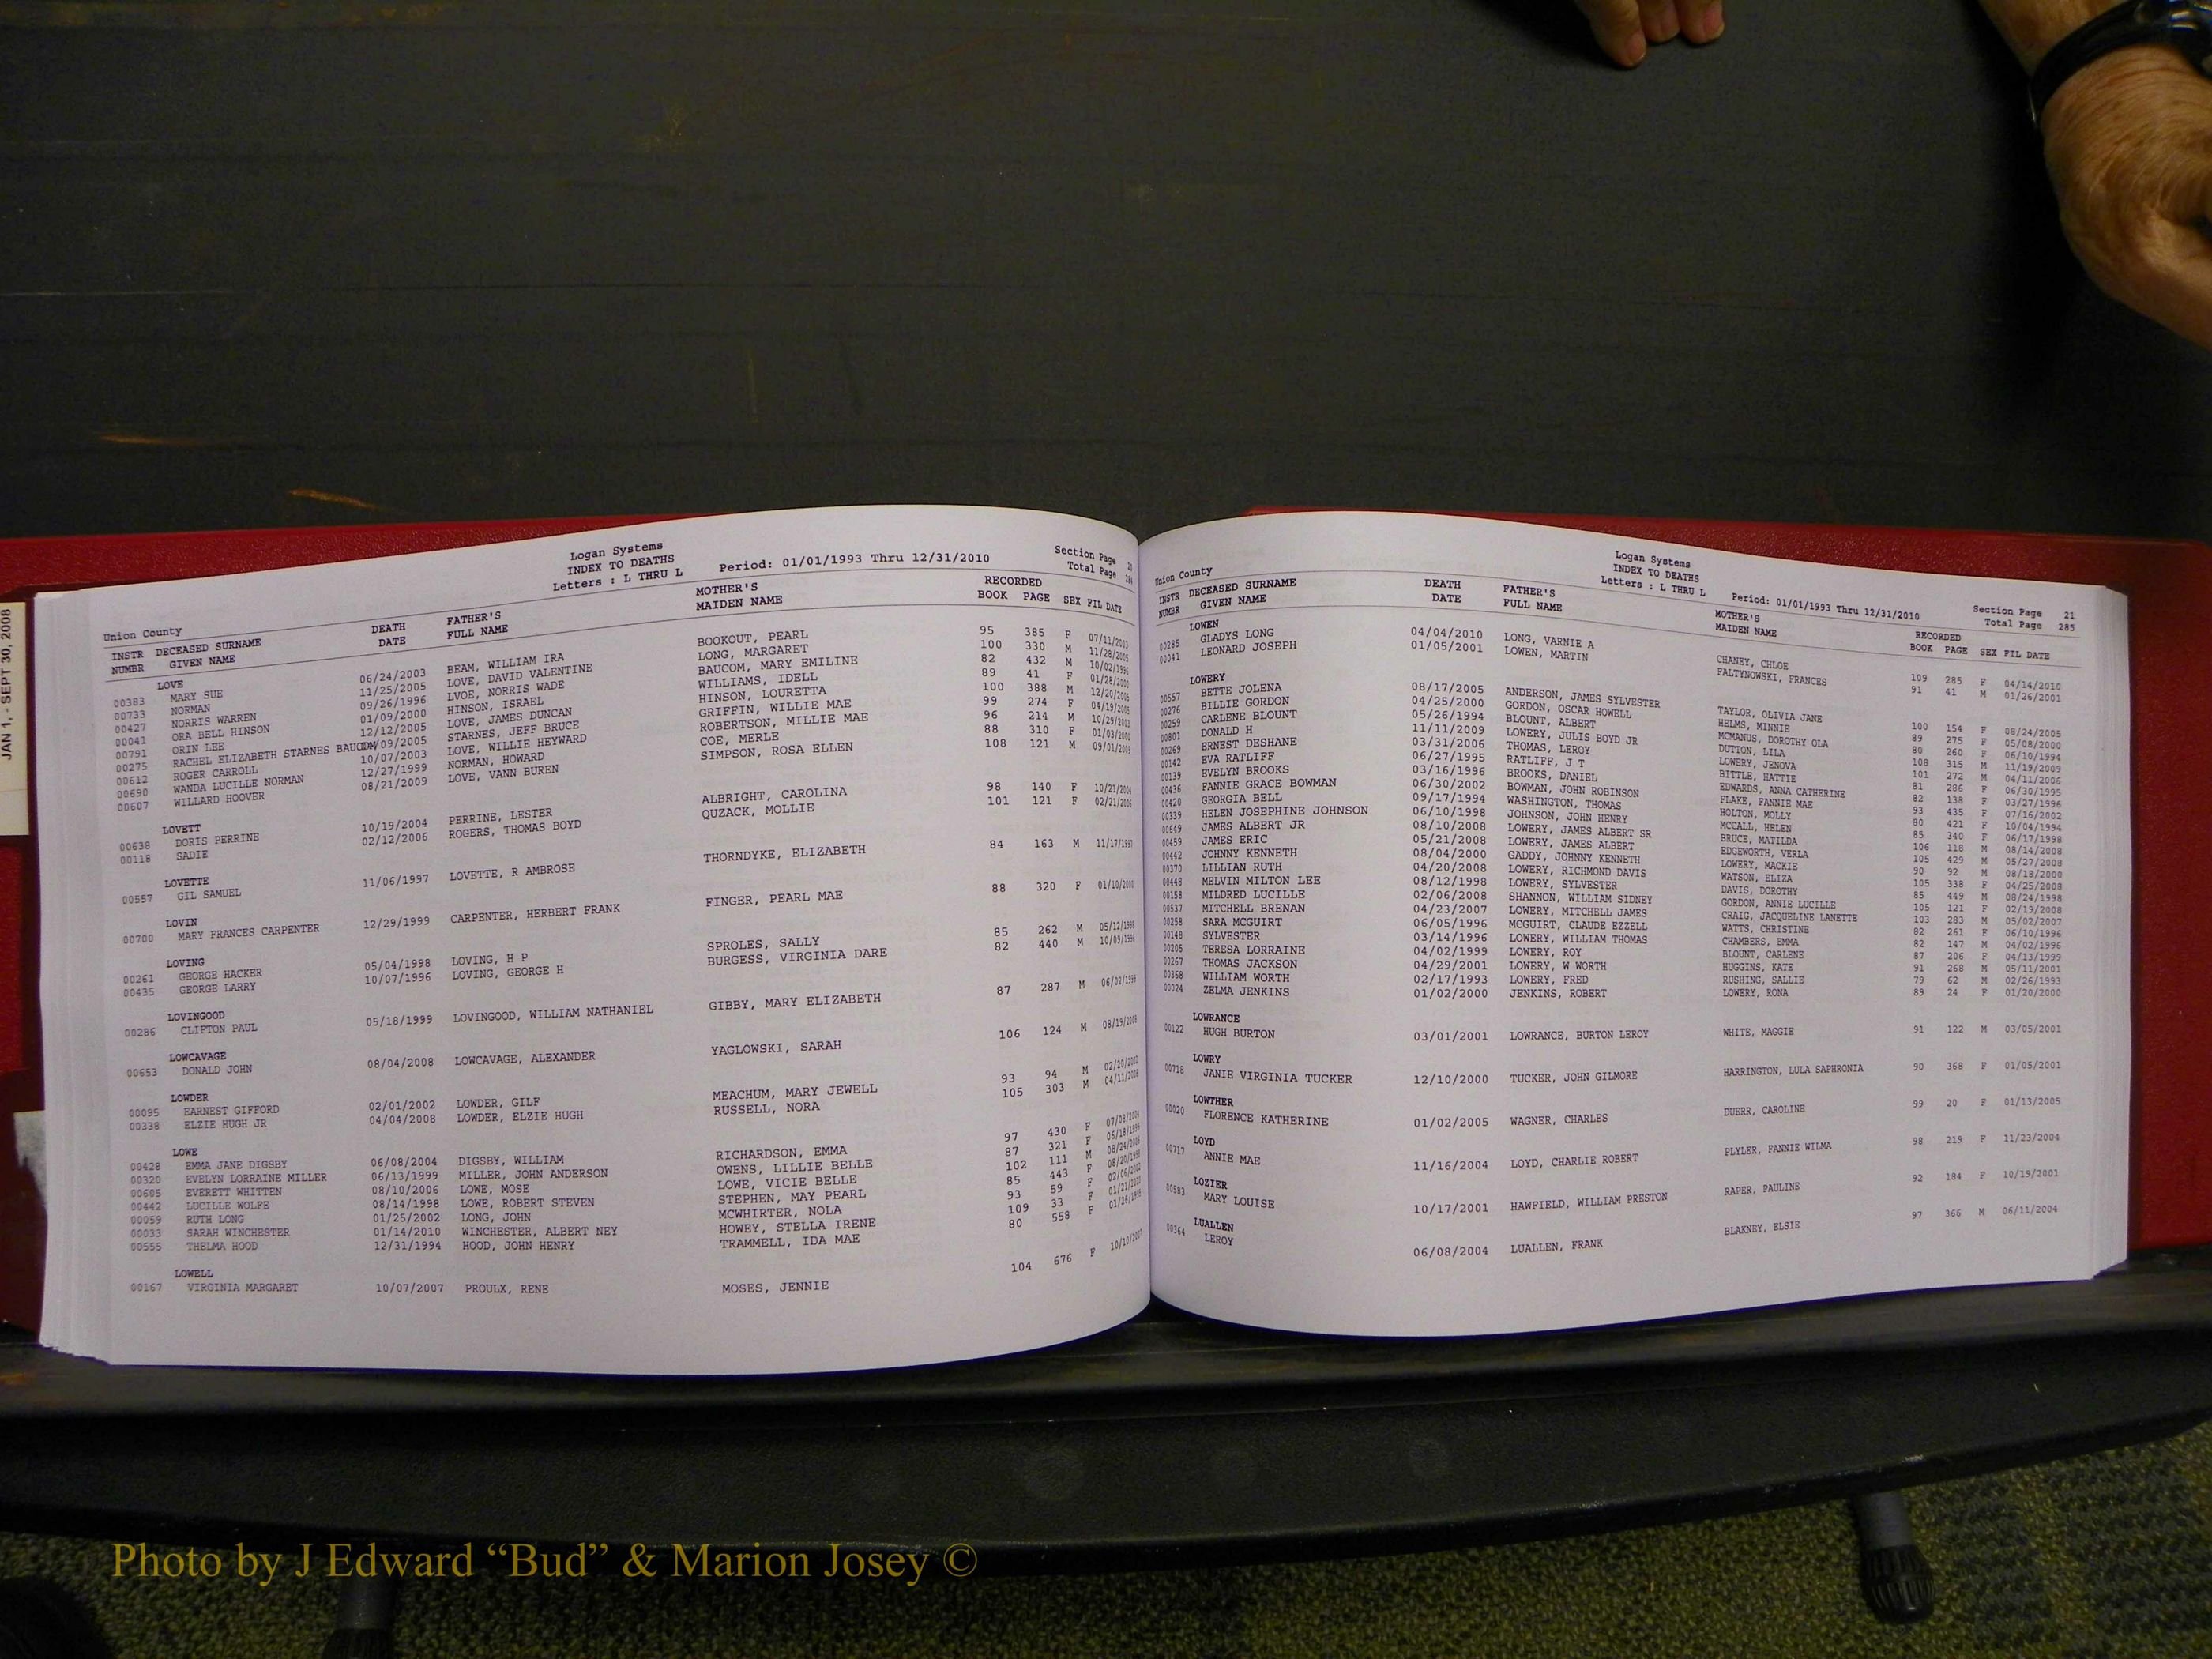 JAN 1, - SEPT 30, 2008
Logan Systems
INDEX TO DEATHS
Letters : L THRU L Period: 01/01/1993 Thru 12/31/2010
Section Page
Total Page
Union County
INSTR DECEASED SURNAME DEATH FATHER'S MOTHER'S RECORDED
NUMBR GIVEN NAME DATE FULL NAME MAIDEN NAME BOOK PAGE SEX FIL DATE
LOVE
00383 MARY SUE 06/24/2003 BEAM, WILLIAM IRA BOOKOUT, PEARL 95 385 F 07/11/2003
00733 NORMAN 11/25/2005 LOVE, DAVID VALENTINE LONG, MARGARET 100 330 M 11/28/2005
00427 NORRIS WARREN 09/26/1996 LVOE, NORRIS WADE BAUCOM, MARY EMILINE 82 432 M 10/02/1996
00041 ORA BELL HINSON 01/09/2000 HINSON, ISRAEL WILLIAMS, IDELL 89 41 F 01/28/2000
00791 ORIN LEE 12/12/2005 LOVE, JAMES DUNCAN HINSON, LOURETTA 100 388 M 12/20/2005
00275 RACHEL ELIZABETH STARNES BAUCOM 04/09/2005 STARNES, JEFF BRUCE GRIFFIN, WILLIE MAE 99 274 F 04/19/2005
00612 ROGER CARROLL 10/07/2003 LOVE, WILLIE HEYWARD ROBERTSON, MILLIE MAE 96 214 M 10/29/2003
00690 WANDA LUCILLE NORMAN 12/27/1999 NORMAN, HOWARD COE, MERLE 88 310 F 01/03/2000
00607 WILLARD HOOVER 08/21/2009 LOVE, VANN BUREN SIMPSON, ROSA ELLEN 108 121 M 09/01/2009
LOVETT
00638 DORIS PERRINE 10/19/2004 PERRINE, LESTER ALBRIGHT, CAROLINA 98 140 F 10/21/2004
00118 SADIE 02/12/2006 ROGERS, THOMAS BOYD QUZACK, MOLLIE 101 121 F 02/21/2006
LOVETTE
00557 GIL SAMUEL 11/06/1997 LOVETTE, R AMBROSE THORNDYKE, ELIZABETH 84 163 M 11/17/1997
LOVIN
00700 MARY FRANCES CARPENTER 12/29/1999 CARPENTER, HERBERT FRANK FINGER, PEARL MAE 88 320 F 01/10/2000
LOVING
00261 GEORGE HACKER 05/04/1998 LOVING, H P SPROLES, SALLY 85 262 M 05/12/1998
00435 GEORGE LARRY 10/07/1996 LOVING, GEORGE H BURGESS, VIRGINIA DARE 82 440 M 10/09/1996
LOVINGOOD
00286 CLIFTON PAUL 05/18/1999 LOVINGOOD, WILLIAM NATHANIEL GIBBY, MARY ELIZABETH 87 287 M 06/02/1999
LOWCAVAGE
00653 DONALD JOHN 08/04/2008 LOWCAVAGE, ALEXANDER YAGLOWSKI, SARAH 106 124 M 08/19/2008
LOWDER
00095 EARNEST GIFFORD 02/01/2002 LOWDER, GILF MEACHUM, MARY JEWELL 93 94 M 02/20/2002
00338 ELZIE HUGH JR 04/04/2008 LOWDER, ELZIE HUGH RUSSELL, NORA 105 303 M 04/11/2008
LOWE
00428 EMMA JANE DIGSBY 06/08/2004 DIGSBY, WILLIAM RICHARDSON, EMMA 97 430 F 07/08/2004
00320 EVELYN LORRAINE MILLER 06/13/1999 MILLER, JOHN ANDERSON OWENS, LILLIE BELLE 87 321 F 06/18/1999
00605 EVERETT WHITTEN 08/10/2006 LOWE, MOSE LOWE, VICIE BELLE 102 111 M 08/24/2006
00442 LUCILLE WOLFE 08/14/1998 LOWE, ROBERT STEVEN STEPHEN, MAY PEARL 85 443 F 08/20/1998
00059 RUTH LONG 01/25/2002 LONG, JOHN MCWHIRTER, NOLA 93 59 F 02/06/2002
00033 SARAH WINCHESTER 01/14/2010 WINCHESTER, ALBERT NEY HOWEY, STELLA IRENE 109 33 F 01/21/2010
00555 THELMA HOOD 12/31/1994 HOOD, JOHN HENRY TRAMMELL, IDA MAE 80 558 F 01/26/1995
LOWELL
00167 VIRGINIA MARGARET 10/07/2007 PROULX, RENE MOSES, JENNIE 104 676 F 10/10/2007
Logan Systems
INDEX TO DEATHS
Letters : L THRU L Period: 01/01/1993 Thru 12/31/2010
Section Page 21
Total Page 285
Union County
INSTR DECEASED SURNAME DEATH FATHER'S MOTHER'S RECORDED
NUMBR GIVEN NAME DATE FULL NAME MAIDEN NAME BOOK PAGE SEX FIL DATE
LOWEN
00285 GLADYS LONG 04/04/2010 LONG, VARNIE A CHANEY, CHLOE 109 285 F 04/14/2010
00041 LEONARD JOSEPH 01/05/2001 LOWEN, MARTIN FALTYNOWSKI, FRANCES 91 41 M 01/26/2001
LOWERY
00557 BETTE JOLENA 08/17/2005 ANDERSON, JAMES SYLVESTER TAYLOR, OLIVIA JANE 100 154 F 08/24/2005
00276 BILLIE GORDON 04/25/2000 GORDON, OSCAR HOWELL HELMS, MINNIE 89 275 F 05/08/2000
00259 CARLENE BLOUNT 05/26/1994 BLOUNT, ALBERT MCMANUS, DOROTHY OLA 80 260 F 06/10/1994
00801 DONALD H 11/11/2009 LOWERY, JULIS BOYD JR DUTTON, LILA 108 315 M 11/19/2009
00269 ERNEST DESHANE 03/31/2006 THOMAS, LEROY LOWERY, JENOVA 101 272 M 04/11/2006
00142 EVA RATLIFF 06/27/1995 RATLIFF, J T BITTLE, HATTIE 81 286 F 06/30/1995
00139 EVELYN BROOKS 03/16/1996 BROOKS, DANIEL EDWARDS, ANNA CATHERINE 82 138 F 03/27/1996
00436 FANNIE GRACE BOWMAN 06/30/2002 BOWMAN, JOHN ROBINSON FLAKE, FANNIE MAE 93 435 F 07/16/2002
00420 GEORGIA BELL 09/17/1994 WASHINGTON, THOMAS HOLTON, MOLLY 80 421 F 10/04/1994
00339 HELEN JOSEPHINE JOHNSON 06/10/1998 JOHNSON, JOHN HENRY MCCALL, HELEN 85 340 F 06/17/1998
00649 JAMES ALBERT JR 08/10/2008 LOWERY, JAMES ALBERT SR BRUCE, MATILDA 106 118 M 08/14/2008
00459 JAMES ERIC 05/21/2008 LOWERY, JAMES ALBERT EDGEWORTH, VERLA 105 429 M 05/27/2008
00442 JOHNNY KENNETH 08/04/2000 GADDY, JOHNNY KENNETH LOWERY, MACKIE 90 92 M 08/18/2000
00370 LILLIAN RUTH 04/20/2008 LOWERY, RICHMOND DAVIS WATSON, ELIZA 105 338 F 04/25/2008
00448 MELVIN MILTON LEE 08/12/1998 LOWERY, SYLVESTER DAVIS, DOROTHY 85 449 M 08/24/1998
00158 MILDRED LUCILLE 02/06/2008 SHANNON, WILLIAM SIDNEY GORDON, ANNIE LUCILLE 105 121 F 02/19/2008
00537 MITCHELL BRENAN 04/23/2007 LOWERY, MITCHELL JAMES CRAIG, JACQUELINE LANETTE 103 283 M 05/02/2007
00258 SARA MCGUIRT 06/05/1996 MCGUIRT, CLAUDE EZZELL WATTS, CHRISTINE 82 261 F 06/10/1996
00148 SYLVESTER 03/14/1996 LOWERY, WILLIAM THOMAS CHAMBERS, EMMA 82 147 M 04/02/1996
00205 TERESA LORRAINE 04/02/1999 LOWERY, ROY BLOUNT, CARLENE 87 206 F 04/13/1999
00267 THOMAS JACKSON 04/29/2001 LOWERY, W WORTH HUGGINS, KATE 91 268 M 05/11/2001
00368 WILLIAM WORTH 02/17/1993 LOWERY, FRED RUSHING, SALLIE 79 62 M 02/26/1993
00024 ZELMA JENKINS 01/02/2000 JENKINS, ROBERT LOWERY, RONA 89 24 F 01/20/2000
LOWRANCE
00122 HUGH BURTON 03/01/2001 LOWRANCE, BURTON LEROY WHITE, MAGGIE 91 122 M 03/05/2001
LOWRY
00718 JANIE VIRGINIA TUCKER 12/10/2000 TUCKER, JOHN GILMORE HARRINGTON, LULA SAPHRONIA 90 368 F 01/05/2001
LOWTHER
00020 FLORENCE KATHERINE 01/02/2005 WAGNER, CHARLES DUERR, CAROLINE 99 20 F 01/13/2005
LOYD
00717 ANNIE MAE 11/16/2004 LOYD, CHARLIE ROBERT PLYLER, FANNIE WILMA 98 219 F 11/23/2004
LOZIER
00583 MARY LOUISE 10/17/2001 HAWFIELD, WILLIAM PRESTON RAPER, PAULINE 92 184 F 10/19/2001
LUALLEN
00364 LEROY 06/08/2004 LUALLEN, FRANK BLAKNEY, ELSIE 97 366 M 06/11/2004
Photo by J Edward “Bud” & Marion Josey ©